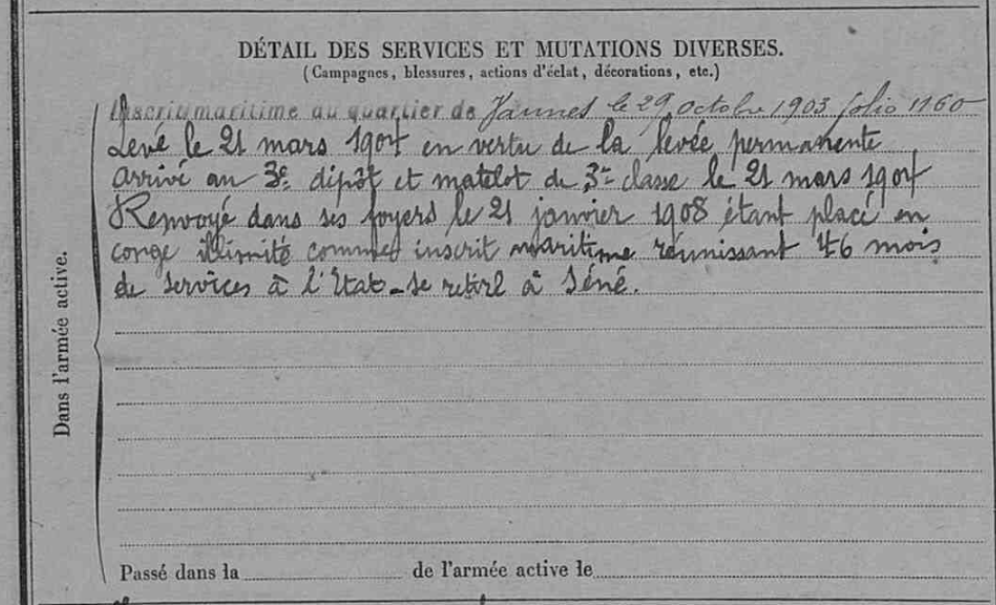 DÉTAIL DES SERVICES ET MUTATIONS DIVERSES.
(Campagnes, blessures, actions d'éclat, décorations, etc.)
Inscrit maritime au quartier de Vannes le 29 octobre 1903 folio 1160
Levé le 21 mars 1904 en vertu de la levée permanente
arrivé au 3e dépôt et matelot de 3e classe le 21 mars 1904
Renvoyé dans ses foyers le 21 janvier 1908 étant placé en
congé illimité comme inscrit maritime réunissant 46 mois
de services à l'Etat - se retire à Séné.
Dans l'armée active.
Passé dans la de l'armée active le